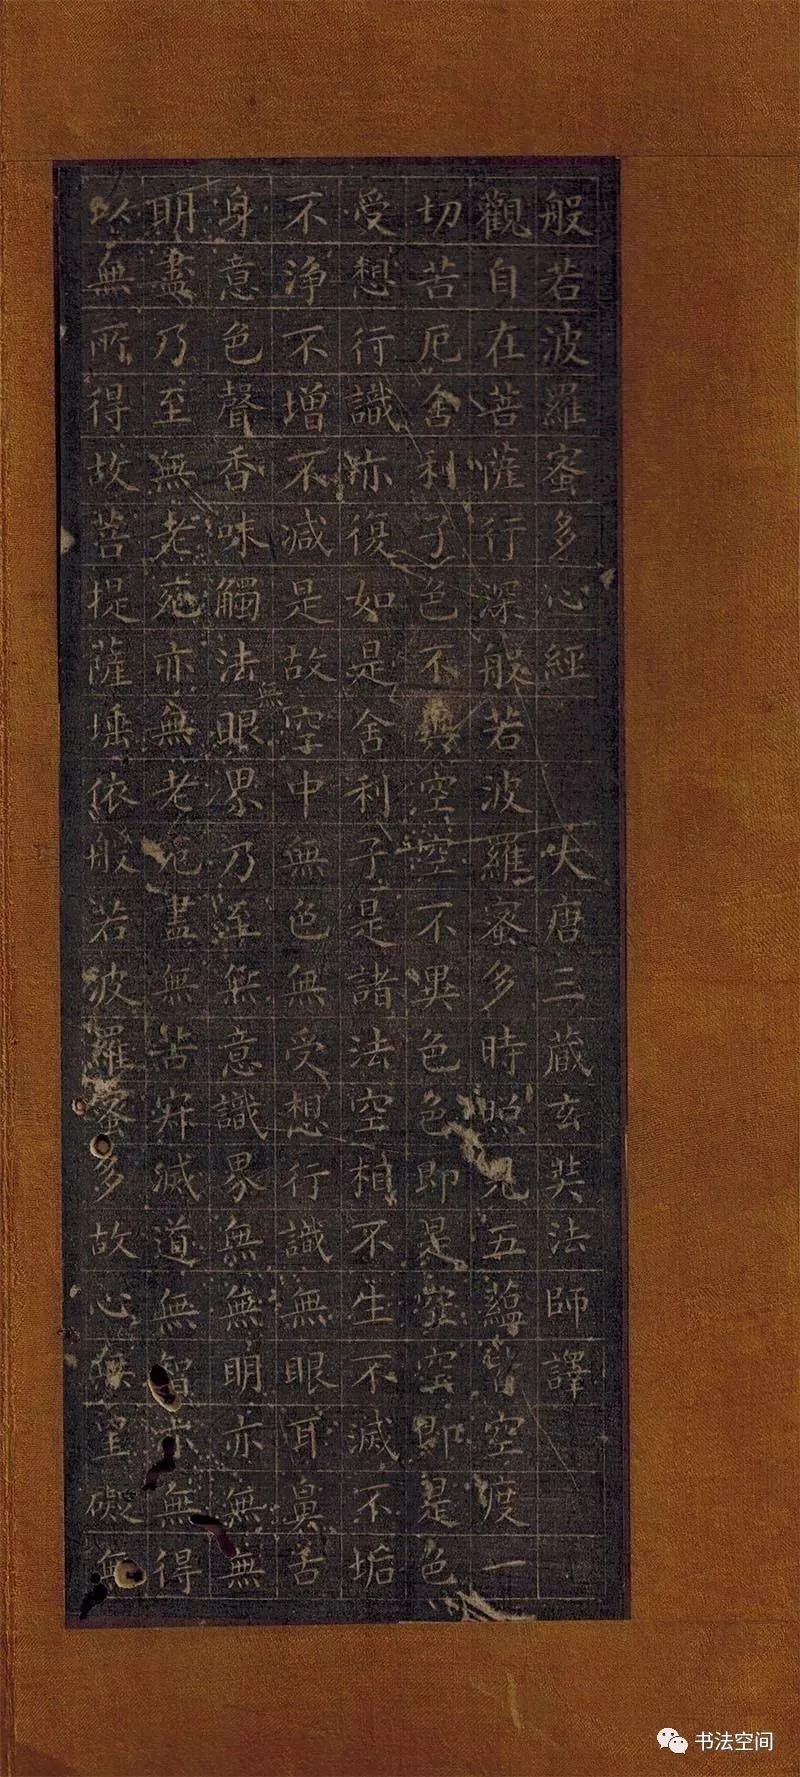 般若波羅蜜多心經 大唐三藏玄奘法師譯
觀自在菩薩行深般若波羅蜜多時照見五蘊皆空度一
切苦厄舍利子色不異空空不異色色即是空空即是色
受想行識亦復如是舍利子是諸法空相不生不滅不垢
不淨不增不減是故空中無色無受想行識無眼耳鼻舌
身意色聲香味觸法無眼界乃至無意識界無無明亦無無
明盡乃至無老死亦無老死盡無苦寂滅道無智亦無得
以無所得故菩提薩埵依般若波羅蜜多故心無罣礙無
书法空间